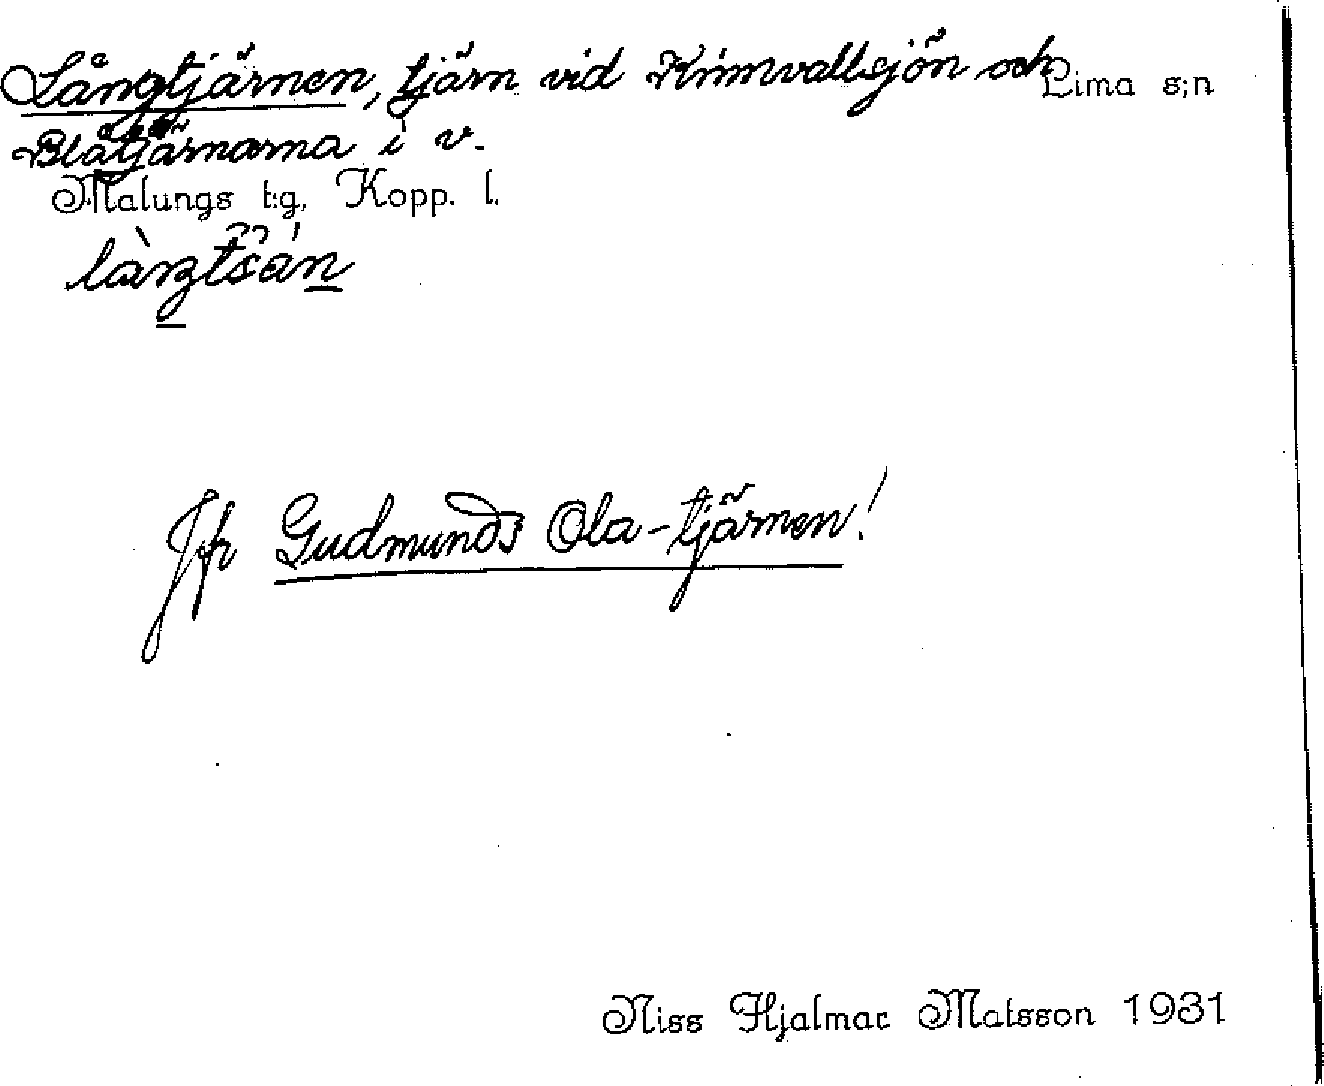 Långtjärnen, tjärn vid Krimvallsjön och Lima s;n
Blåtjärnarna i v.
Malungs t:g, Kopp. l.
Jfr Gudmunds Ola-tjärnen!
Niss Hjalmar Matsson 1931